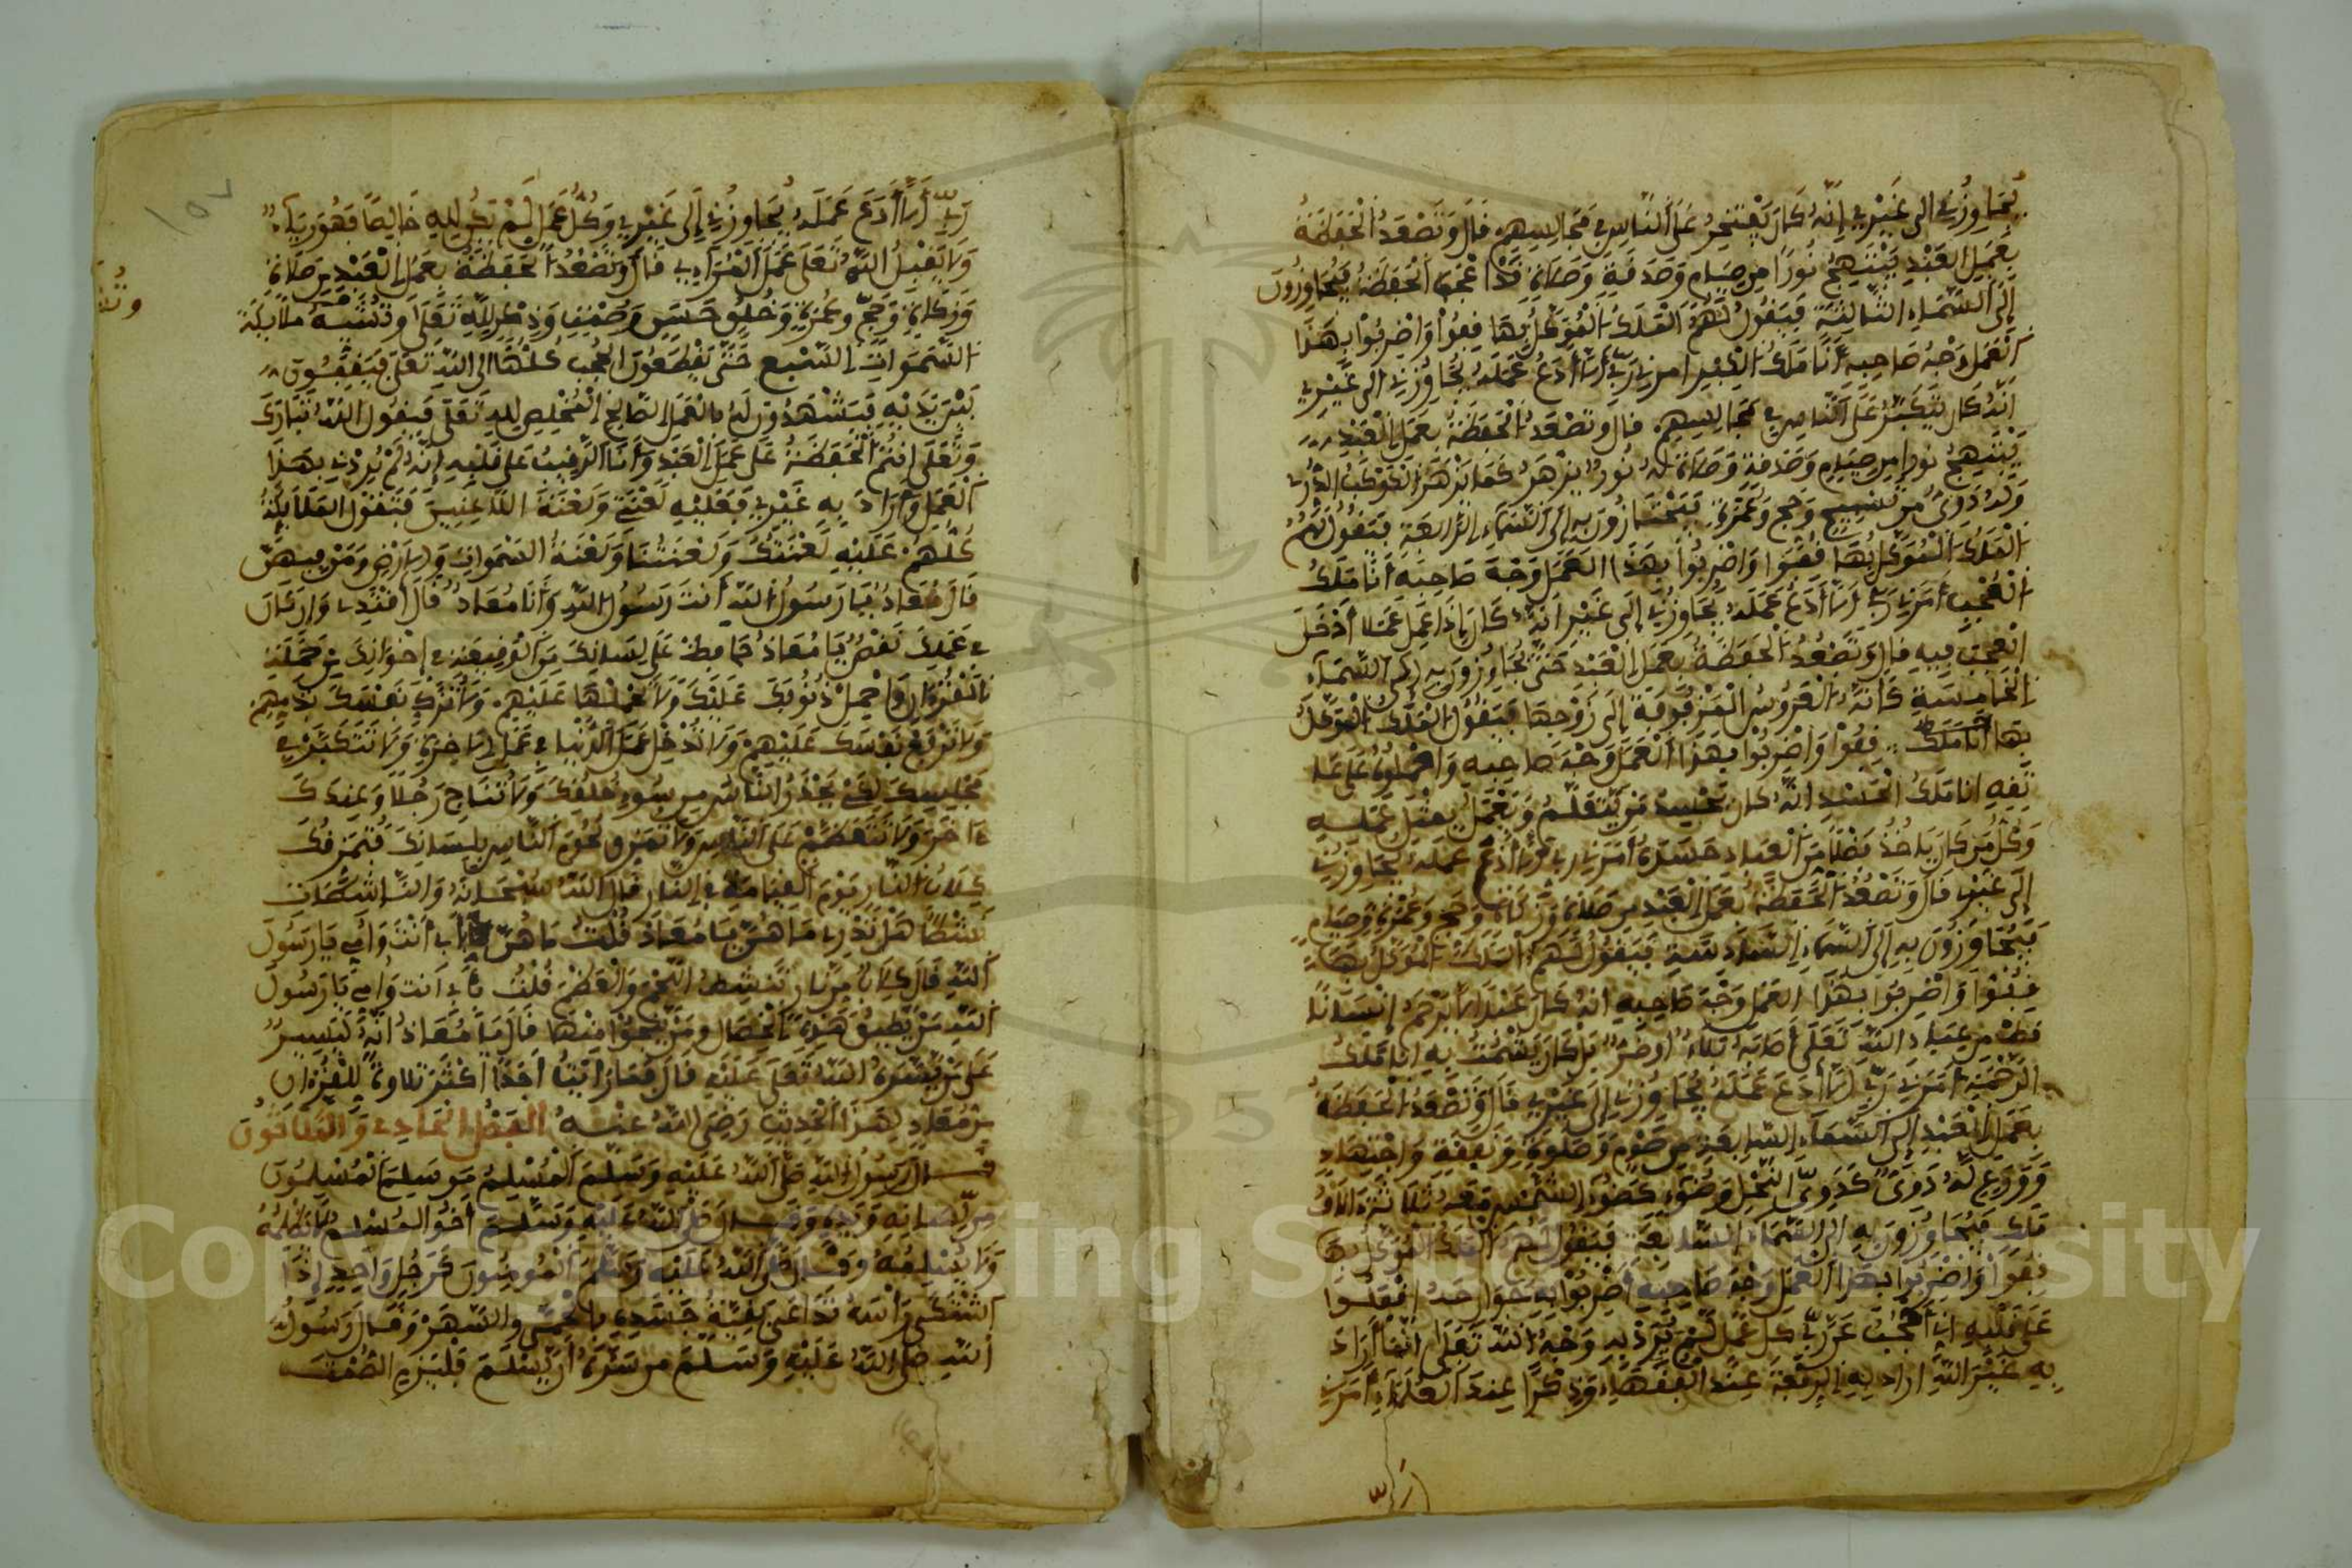 يُجَاوِزُنِي إِلَى غَيْرِي إِنَّهُ كَانَ يَفْتَخِرُ عَلَى النَّاسِ فِي مَجَالِسِهِمْ قَالَ وَتَصْعَدُ الْحَفَظَةُ
بِعَمَلِ الْعَبْدِ يَبْتَهِجُ نُورًا مِنْ صِيَامٍ وَصَدَقَةٍ وَصَلَاةٍ قَدْ أَعْجَبَ الْحَفَظَةَ فَيُجَاوِزُونَ
إِلَى السَّمَاءِ الثَّالِثَةِ فَيَقُولُ لَهُمُ الْمَلَكُ الْمُوَكَّلُ بِهَا قِفُوا وَاضْرِبُوا بِهَذَا
الْعَمَلِ وَجْهَ صَاحِبِهِ أَنَا مَلَكُ الْكِبْرِ أمرني رَبِّي أَنْ لَا أَدَعَ عَمَلَهُ يُجَاوِزُنِي إِلَى غَيْرِي
إِنَّهُ كَانَ يَتَكَبَّرُ عَلَى النَّاسِ فِي مَجَالِسِهِمْ قَالَ وَتَصْعَدُ الْحَفَظَةُ بِعَمَلِ الْعَبْدِ
يَبْتَهِجُ نُورًا مِنْ صِيَامٍ وَصَدَقَةٍ وَصَلَاةٍ لَهُ نُورٌ يَزْهَرُ كَمَا يَزْهَرُ الْكَوْكَبُ الدُّرِّي
وَلَهُ دَوِيٌّ مِنْ تَسْبِيحٍ وَحَجٍّ وَعُمْرَةٍ فَيَجْتَازُونَ بِهِ إِلَى السَّمَاءِ الرَّابِعَةِ فَيَقُولُ لَهُمُ
الْمَلَكُ الْمُوَكَّلُ بِهَا قِفُوا وَاضْرِبُوا بِهَذَا الْعَمَلِ وَجْهَ صَاحِبِهِ أَنَا مَلَكُ
الْعُجْبِ أَمَرَنِي رَبِّي أَنْ لَا أَدَعَ عَمَلَهُ يُجَاوِزُنِي إِلَى غَيْرِي أَنَّهُ كَانَ إِذَا عَمِلَ عَمَلًا أَدْخَلَ
الْعُجْبَ فِيهِ قَالَ وَتَصْعَدُ الْحَفَظَةُ بِعَمَلِ الْعَبْدِ حَتَّى يُجَاوِزُونَ بِهِ إِلَى السَّمَاءِ
الْخَامِسَةِ كَأَنَّهُ الْعَرُوسُ الْمَزْفُوفَةُ إِلَى زَوْجِهَا فَيَقُولُ الْمَلَكُ الْمُوَكَّلُ
بِهَا أَنَا مَلَكُ قِفُوا وَاضْرِبُوا بِهَذَا الْعَمَلِ وَجْهَ صَاحِبِهِ وَاحْمِلُوهُ عَلَى عَا
تِقِهِ أَنَا مَلَكُ الْحَسَدِ إِنَّهُ كَانَ يَحْسِدُ مَنْ يَتَعَلَّمُ وَيَعْمَلُ بِمِثْلِ عَمَلِهِ
وَكُلُّ مَنْ كَانَ يَاخُذُ فَضْلًا مِنَ الْعِبَادِ حَسَدَهُ أَمَرَنِي رَبِّي أَنْ لَا أَدَعَ عَمَلَهُ يُجَاوِزُنِي
إِلَى غَيْرِي قَالَ وَتَصْعَدُ الْحَفَظَةُ بِعَمَلِ الْعَبْدِ مِنْ صَلَاةٍ وَزَكَاةٍ وَحَجٍّ وَعُمْرَةٍ وَصِيَامٍ
فَيُجَاوِزُونَ بِهِ إِلَى السَّمَاءِ السَّادِسَةِ فَيَقُولُ لَهُمُ الْمَلَكُ الْمُوَكَّلُ بِهَا
قِفُوا وَاضْرِبُوا بِهَذَا الْعَمَلِ وَجْهَ صَاحِبِهِ إِنَّهُ كَانَ لَا يَرْحَمُ إِنْسَانًا
قَطُّ مِنْ عِبَادِ اللَّهِ تَعَلَى أَصَابَهُ بَلَاءٌ أَوْ ضُرٌّ بَلْ كَانَ يَشْمَتُ بِهِ أَنَا مَلَكُ
الرَّحْمَةِ أَمَرَنِي رَبِّي أَنْ لَا أَدَعَ عَمَلَهُ يُجَاوِزُنِي إِلَى غَيْرِي قَالَ وَتَصْعَدُ الْحَفَظَةُ
بِعَمَلِ الْعَبْدِ إِلَى السَّمَاءِ السَّابِعَةِ مِنْ صَوْمٍ وَصَلَوةٍ وَنَفَقَةٍ وَاجْتِهَادٍ
وَوَرَعٍ لَهُ دَوِيٌّ كَدَوِيِّ النَّحْلِ وَضَوْءٍ كَضَوْءِ الشَّمْسِ مَعَهُ ثَلَاثَةُ آلَافِ
مَلَكٍ فَيُجَاوِزُونَ بِهِ إِلَى السَّمَاءِ السَّابِعَةِ فَيَقُولُ لَهُمُ الْمَلَكُ الْمُوَكَّلُ بِهَا
قِفُوا وَاضْرِبُوا بِهَذَا الْعَمَلِ وَجْهَ صَاحِبِهِ اضْرِبُوا بِهِ جَوَارِحَهُ اقْفِلُوا
عَلَى قَلْبِهِ إِنِّي أَحْجُبُ عَنْ رَبِّي كُلَّ عَمَلٍ لَمْ يُرَدْ بِهِ وَجْهُ اللَّهِ تَعَلَى إِنَّمَا أَرَادَ
بِهِ غَيْرَ اللَّهِ أَرَادَ بِهِ رِفْعَةً عِنْدَ الْفُقَهَاءِ وَذِكْرًا عِنْدَ الْعُلَمَاءِ أَمَرَنِي
رَبِّي
رَبِّي أَنْ لَا أَدَعَ عَمَلَهُ يُجَاوِزُنِي إِلَى غَيْرِي وَكُلُّ عَمَلٍ لَمْ يَكُنْ لِلهِ خَالِصًا فَهُوَ رِيَاء
وَلَا يَقْبَلُ اللَّهُ تَعَلَى عَمَلَ الْمُرَاءِي قَالَ وَتَصْعَدُ الْحَفَظَةُ بِعَمَلِ الْعَبْدِ مِنْ صَلَاةٍ
وَزَكَاةٍ وَحَجٍّ وَعُمْرَةٍ وَخُلُقٍ حَسَنٍ وَصُمْتٍ وَذِكْرٍ لِلَّهِ تَعَلَى وَتُشَيِّعُهُ مَلَائِكَةُ
السَّمَوَاتِ السَّبْعِ حَتَّى يَقْطَعُونَ الْحُجُبَ كُلَّهَا إِلَى اللَّهِ تَعَلَى فَيَقِفُونَ
بَيْنَ يَدَيْهِ فَيَشْهَدُونَ لَهُ بِالْعَمَلِ الصَّالِحِ الْمُخْلِصِ لِلهِ تَعَلَى فَيَقُولُ اللَّهُ تَبَارَكَ
وَتَعَلَى أَنْتُمُ الْحَفَظَةُ عَلَى عَمَلِ الْعَبْدِ وَأَنَا الرَّقِيبُ عَلَى قَلْبِهِ إِنَّهُ لَمْ يُرِدْنِي بِهَذَا
الْعَمَلِ وَأَرَادَ بِهِ غَيْرِي فَعَلَيْهِ لَعْنَتِي وَلَعْنَةُ اللَّاعِنِينَ فَتَقُولُ الْمَلَائِكَةُ
كُلُّهُمْ عَلَيْهِ لَعْنَتُكَ وَلَعْنَتُنَا وَلَعْنَةُ السَّمَوَاتِ وَالْأَرْضِ وَمَنْ فِيهِنَّ
قَالَ مُعَاذٌ يَا رَسُولَ اللَّهِ أَنْتَ رَسُولُ اللَّهِ وَأَنَا مُعَاذٌ قَالَ اقْتَدِ بِي وَإِنْ كَانَ
فِي عَمَلِكَ نَقْصٌ يَا مُعَاذُ حَافِظْ عَلَى لِسَانِكَ مِنَ الْوَقِيعَةِ فِي إِخْوَانِكَ مِنْ حَمَلَةِ
الْقُرْءَانِ وَاحْمِلْ ذُنُوبَكَ عَلَيْكَ وَلَا تَحْمِلْهَا عَلَيْهِمْ وَلَا تُزَكِّ نَفْسَكَ بِذَمِّهِمْ
وَلَا تَرْفَعْ نَفْسَكَ عَلَيْهِمْ وَلَا تُدْخِلْ عَمَلَ الدُّنْيَا فِي عَمَلِ الْآخِرَةِ وَلَا تَتَكَبَّرْ فِي
مَجْلِسِكَ لِكَيْ يَحْذَرَ النَّاسُ مِنْ سُوءِ خُلُقِكَ وَلَا تُنَاجِ رَجُلًا وَعِنْدَكَ
ءَاخَرُ وَلَا تَتَعَظَّمْ عَلَى النَّاسِ وَلَا تُمَزِّقْ لُحُومَ النَّاسِ بِلِسَانِكَ فَتُمَزِّقُكَ
كِلَابُ النَّارِ يَوْمَ الْقِيَامَةِ فِي النَّارِ قَالَ اللَّهُ سُبْحَانَهُ وَالنَّاشِطَاتِ
نَشْطًا هَلْ تَدْرِي مَا هُنَّ يَا مُعَاذُ قُلْتُ مَا هُنَّ بِأَبِي أَنْتَ وَأُمِّي يَا رَسُولَ
اللَّهِ قَالَ كِلَابٌ مِنْ نَارٍ تَنْشِطُ اللَّحْمَ وَالْعَظْمَ قُلْتُ بِأَبِي أَنْتَ وَأُمِّي يَا رَسُولَ
اللَّهِ مَنْ يُطِيقُ هَذِهِ الْخِصَالَ وَمَنْ يَنْجُوا مِنْهَا قَالَ يَا مُعَاذُ إِنَّهُ لَيَسِيرٌ
عَلَى مَنْ يَسَّرَهُ اللَّهُ تَعَلَى عَلَيْهِ قَالَ فَمَا رَأَيْتُ أَحَدًا أَكْثَرَ تِلَاوَةً لِلْقُرْءَانِ
مِنْ مُعَاذٍ لِهَذَا الْحَدِيثِ رَضِيَ اللَّهُ عَنْهُ الْفَصْلُ الْحَادِي وَالثَّلَاثُونَ
قال رَسُولُ اللَّهِ صَلَّى اللَّهُ عَلَيْهِ وَسَلَّمَ الْمُسْلِمُ مَنْ سَلِمَ الْمُسْلِمُونَ
مِنْ لِسَانِهِ وَيَدِهِ وَقَالَ صَلَّى اللَّهُ عَلَيْهِ وَسَلَّمَ الْمُسْلِمُ أَخُو الْمُسْلِمِ لَا يَظْلِمُهُ
وَلَا يُسْلِمُهُ وَقَالَ صَلَّى اللَّهُ عَلَيْهِ وَسَلَّمَ الْمُؤْمِنُونَ كَرَجُلٍ وَاحِدٍ إِذَا
اشْتَكَى رَأْسُهُ تَدَاعَى بَقِيَّةُ جَسَدِهِ بِالْحُمَّى وَالسَّهَرِ وَقَالَ رَسُولُ
اللَّهِ صَلَّى اللَّهُ عَلَيْهِ وَسَلَّمَ مَنْ سَرَّهُ أَنْ يَسْلَمَ فَلْيَلْزَمِ الصُّمْتَ
Copyright © King Saud University
1957